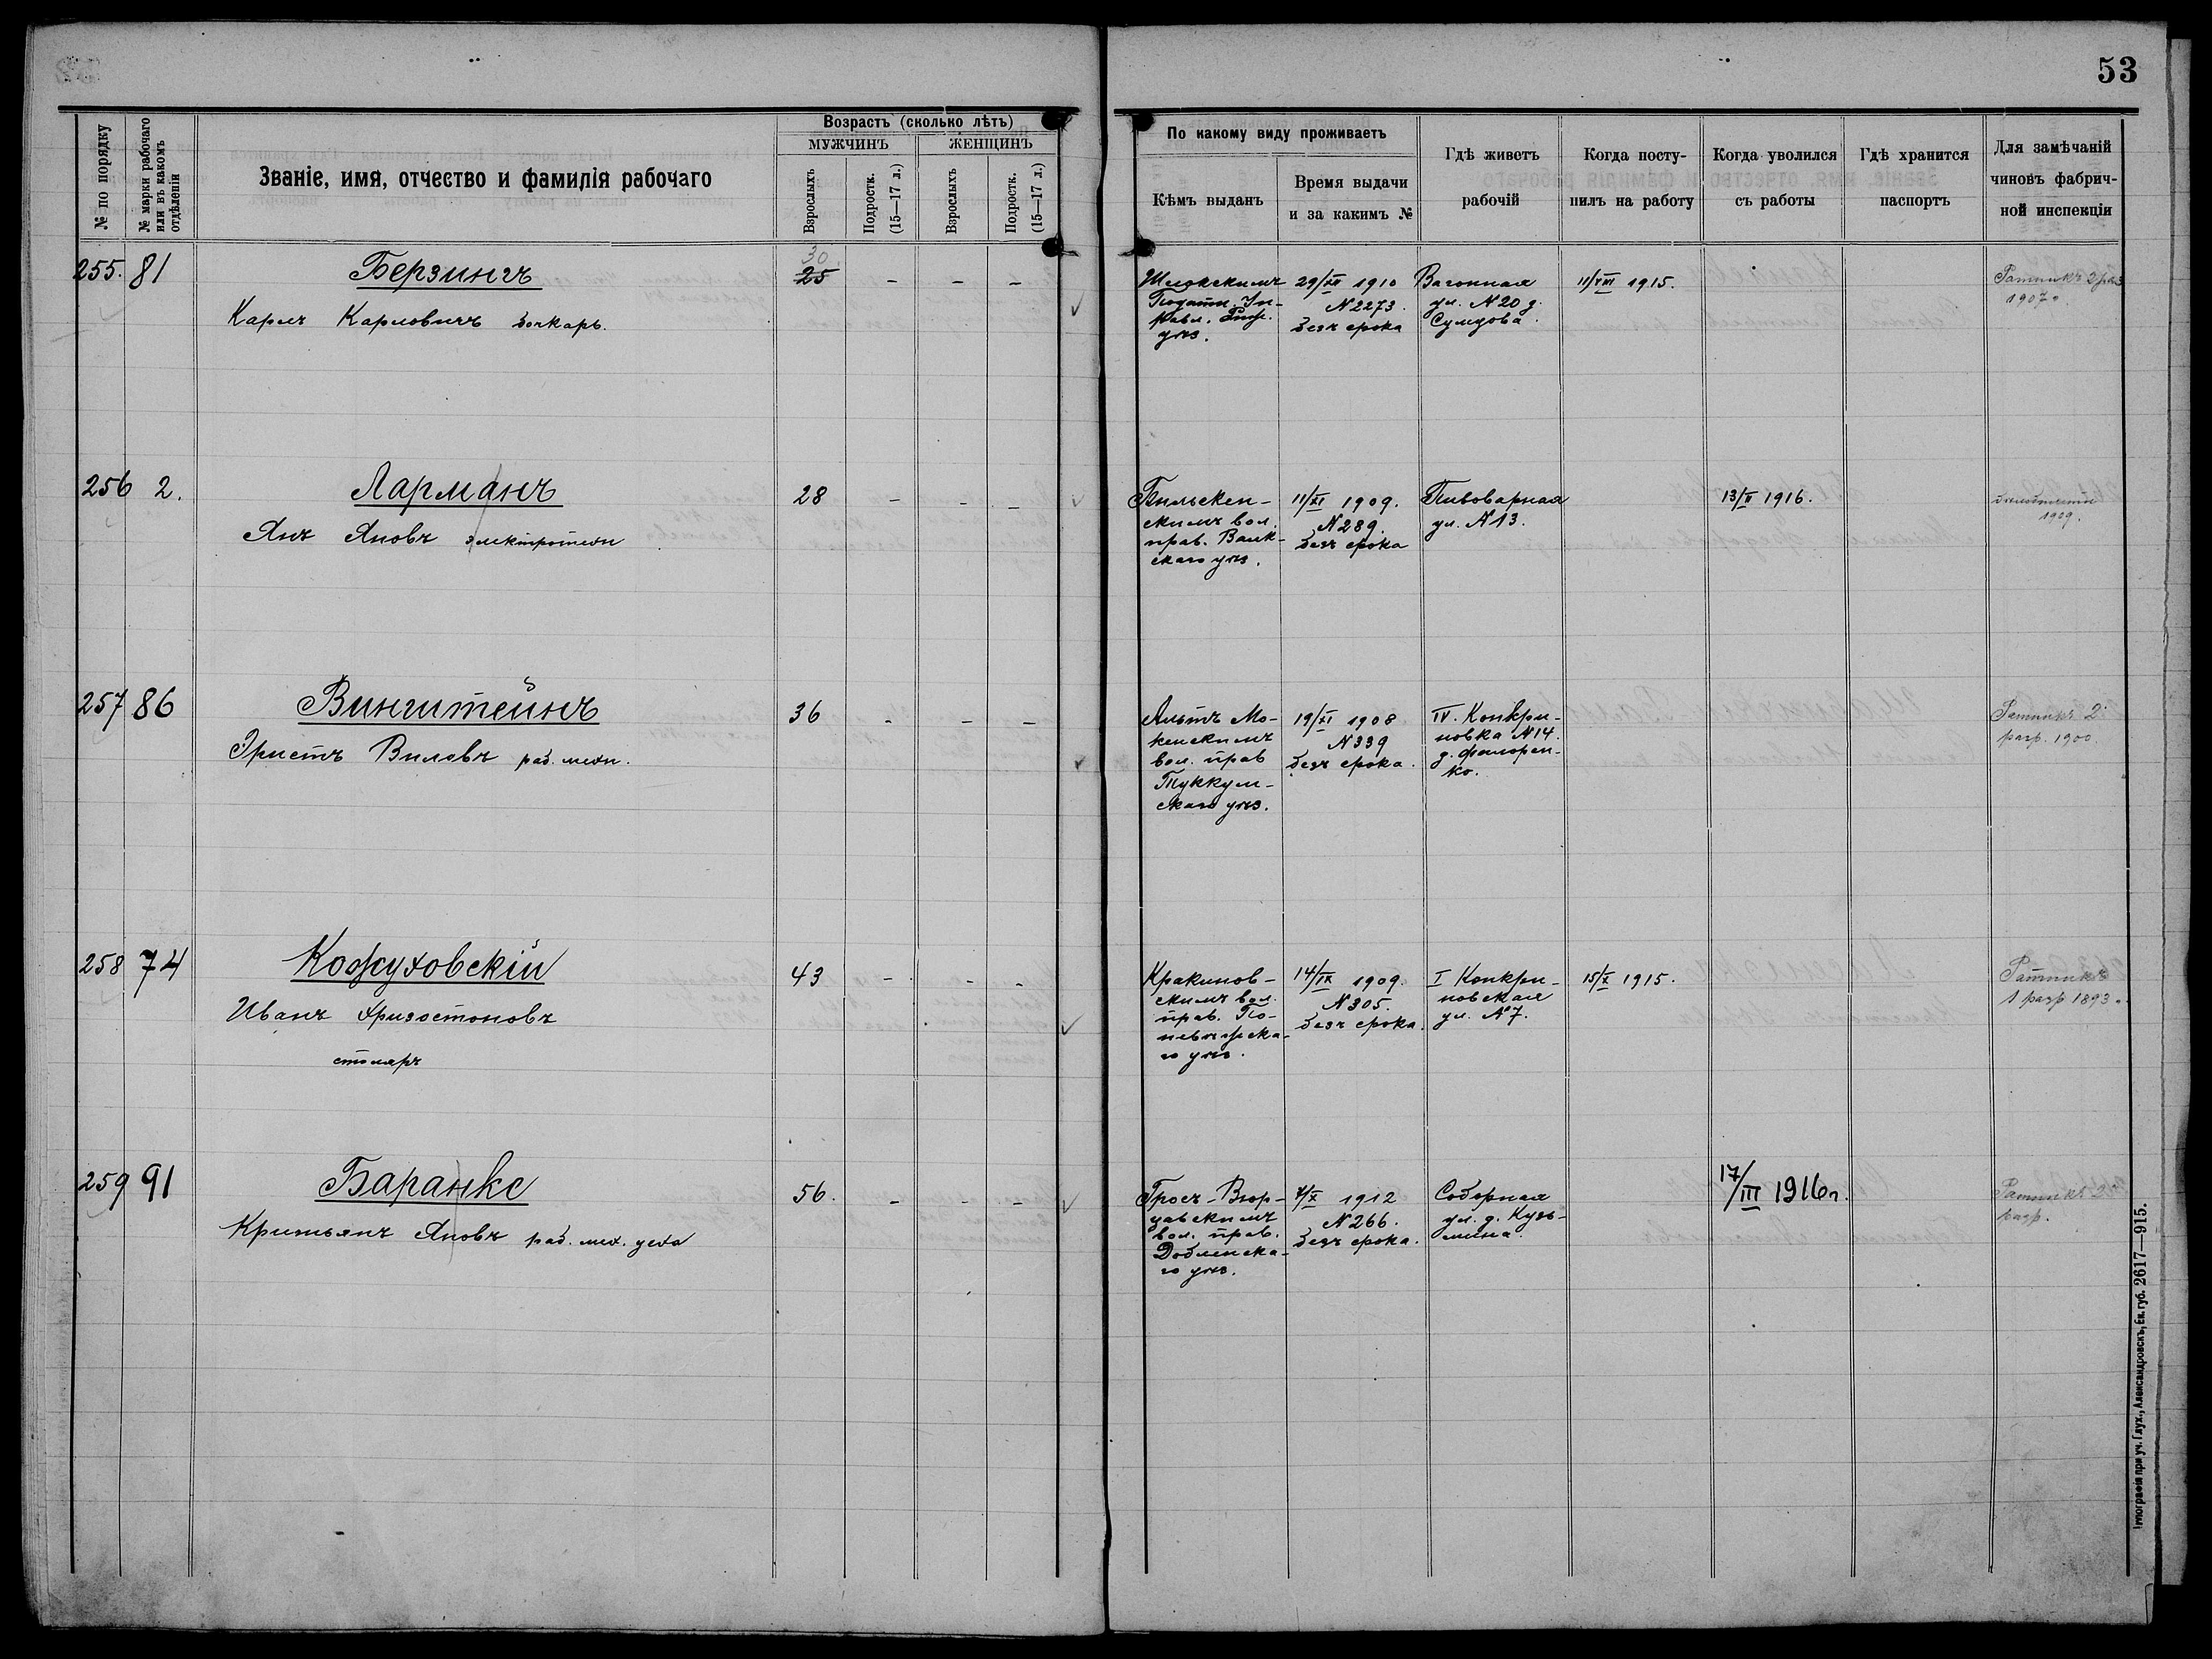 53
№ по порядку
№ марки рабочаго или въ какомъ отдѣленіи
Званіе, имя, отчество и фамилія рабочаго
Возрастъ (сколько лѣтъ)
МУЖЧИНЪ
ЖЕНЩИНЪ
Взрослыхъ
Подростк. (15—17 л.)
Взрослыхъ
Подростк. (15—17 л.)
По какому виду проживаетъ
Кѣмъ выданъ
Время выдачи
и за какимъ №
Гдѣ живетъ
рабочій
Когда посту-
пилъ на работу
Когда уволился
съ работы
Гдѣ хранится
паспортъ
Для замѣчаній
чиновъ фабрич-
ной инспекціи
255. 81
Берзингъ
Карлъ Карловичъ
30
25
— — —
Шлокскимъ
Податн.
уѣз.
29/XII 1910
N 2273.
безъ срока
Вагонная
ул. N 20 д.
Сумцова.
11/VIII 1915.
Ратникъ 2 раз
1907 г.
256 2.
Ларманъ
Янъ Яновъ электротехн
28
— — —
вол.
прав. Валк-
скаго уѣз.
11/XI 1909.
N 289.
безъ срока
Пивоварная
ул. N 13.
13/II 1916.
1909.
257 86
Вингштейнъ
Эрнстъ Виловъ раб. мехн.
36
— — —
Альтъ Мо-
кенскимъ
вол. прав
Туккум-
скаго уѣз.
19/XI 1908
N 339
безъ срока.
IV. Конкри-
новка N 14.
д.
ко.
Ратникъ 2
разр. 1900.
258 74
Кожуховскій
Иванъ Хризостоновъ
столяръ
43
— — —
Кракинов-
скимъ вол.
прав. По-
невѣжска-
го уѣз.
14/IX 1909.
N 305.
безъ срока.
I Конкри-
новская
ул. N 7.
15/X 1915.
Ратникъ
1 разр 1893.
259 91
Баранкс
Кришьянъ Яновъ раб. мех. цеха
56.
— — —
Гросъ-Вюр-
цавскимъ
вол. прав.
Добленска-
го уѣз.
7/X 1912
N 266.
безъ срока.
Соборная
ул. д. Кузь-
мина.
17/III 1916 г.
Ратникъ 2
разр.
Типографія при уч. Глух., Александровскъ, Ек. губ. 2617—915.